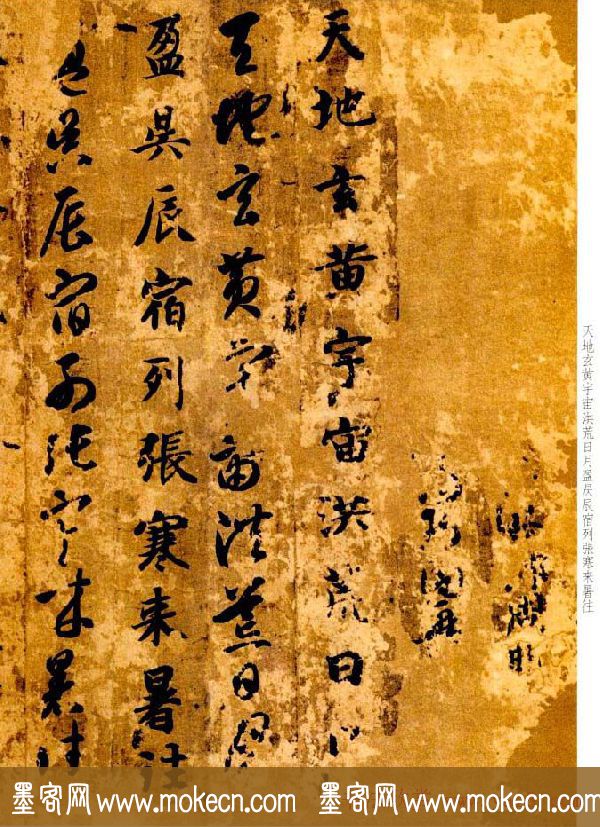 天地玄黄宇宙洪荒日月盈昃辰宿列张寒来暑往
天地玄黄宇宙洪荒日月
天地玄黄宇宙洪荒日月
盈昃辰宿列張寒来暑往
盈昃辰宿列張寒来暑往
墨客网 www.mokecn.com 墨客网 www.mokecn.com